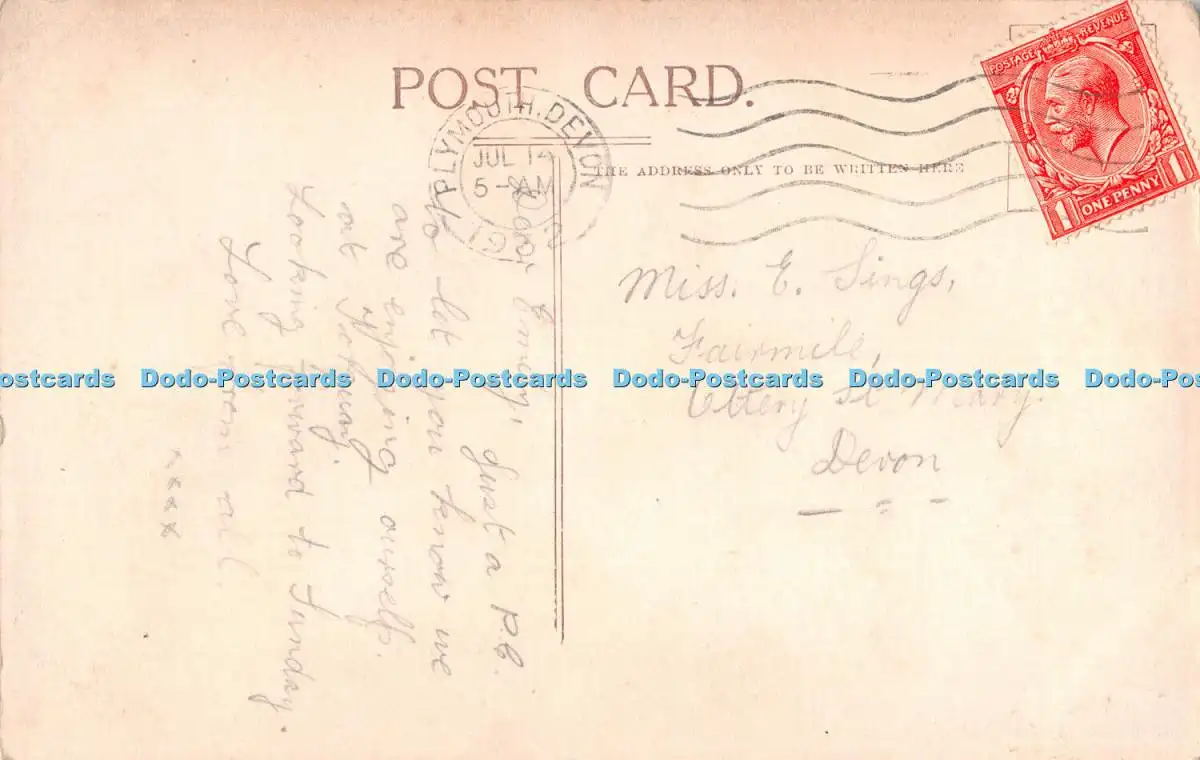 POST CARD.
THE ADDRESS ONLY TO BE WRITTEN HERE
PLYMOUTH. DEVON
JUL 12
5 -
POSTAGE REVENUE
1 ONE PENNY 1
Miss. E. Sings,
Fairmile,
Ottery St Mary.
Devon
Dear Emmy, Just a P.C.
to let you know we
are enjoying ourselfs.
at
Looking forward to Sunday.
Love from all.
x x x x
ostcards Dodo-Postcards Dodo-Postcards Dodo-Postcards Dodo-Postcards Dodo-Po